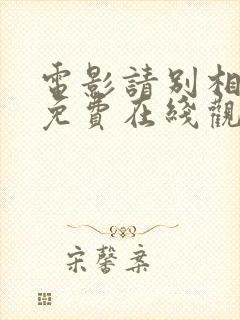 電影請別相
免費在綫觀
宋馨案